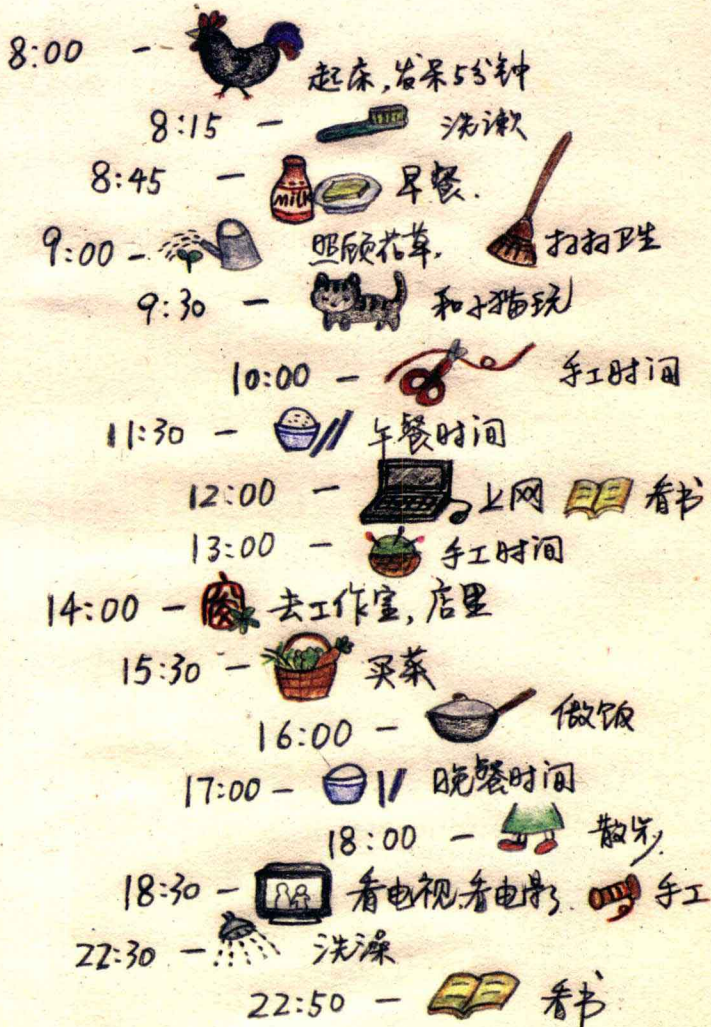 8:00 - 起床,发呆5分钟
8:15 - 洗漱
8:45 - MILK 早餐.
9:00 - 照顾花草, 扫扫卫生
9:30 - 和小猫玩
10:00 - 手工时间
11:30 - 午餐时间
12:00 - 上网 看书
13:00 - 手工时间
14:00 - 去工作室,店里
15:30 - 买菜
16:00 - 做饭
17:00 - 晚餐时间
18:00 - 散步
18:30 - 看电视、看电影 手工
22:30 - 洗澡
22:50 - 看书